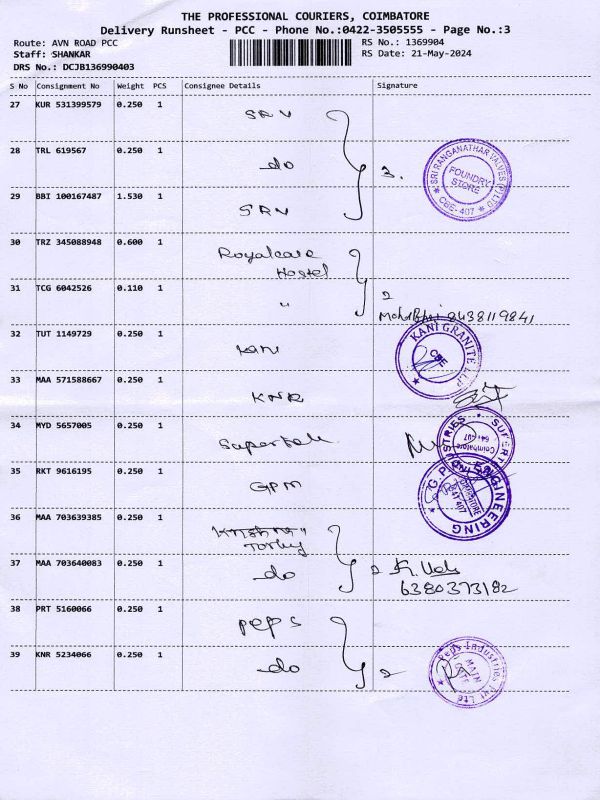 THE PROFESSIONAL COURIERS, COIMBATORE
Delivery Runsheet - PCC - Phone No.:0422-3505555 - Page No.:3
Route: AVN ROAD PCC RS No.: 1369904
Staff: SHANKAR RS Date: 21-May-2024
DRS No.: DCJB136990403
S No Consignment No Weight PCS Consignee Details Signature
27 KUR 531399579 0.250 1 SRV
28 TRL 619567 0.250 1 do 3.
SRI RANGANATHAR VALVES (P) LTD
FOUNDRY
STORE
CBE-407
29 BBI 100167487 1.530 1 SRV
30 TRZ 345088948 0.600 1 Royalcare
Hostel
31 TCG 6042526 0.110 1 " 2
8438119841
32 TUT 1149729 0.250 1 KANI
KANI GRANITE LLP
CBE
33 MAA 571588667 0.250 1 KNR
34 MYD 5657005 0.250 1
Coimbatore
35 RKT 9616195 0.250 1 GPM
ENGINEERING
36 MAA 703639385 0.250 1 Krishna
37 MAA 703640083 0.250 1 do 2
6380373182
38 PRT 5160066 0.250 1 peps
39 KNR 5234066 0.250 1 do 2
Peps Industries Pvt Ltd
MAIN
GATE